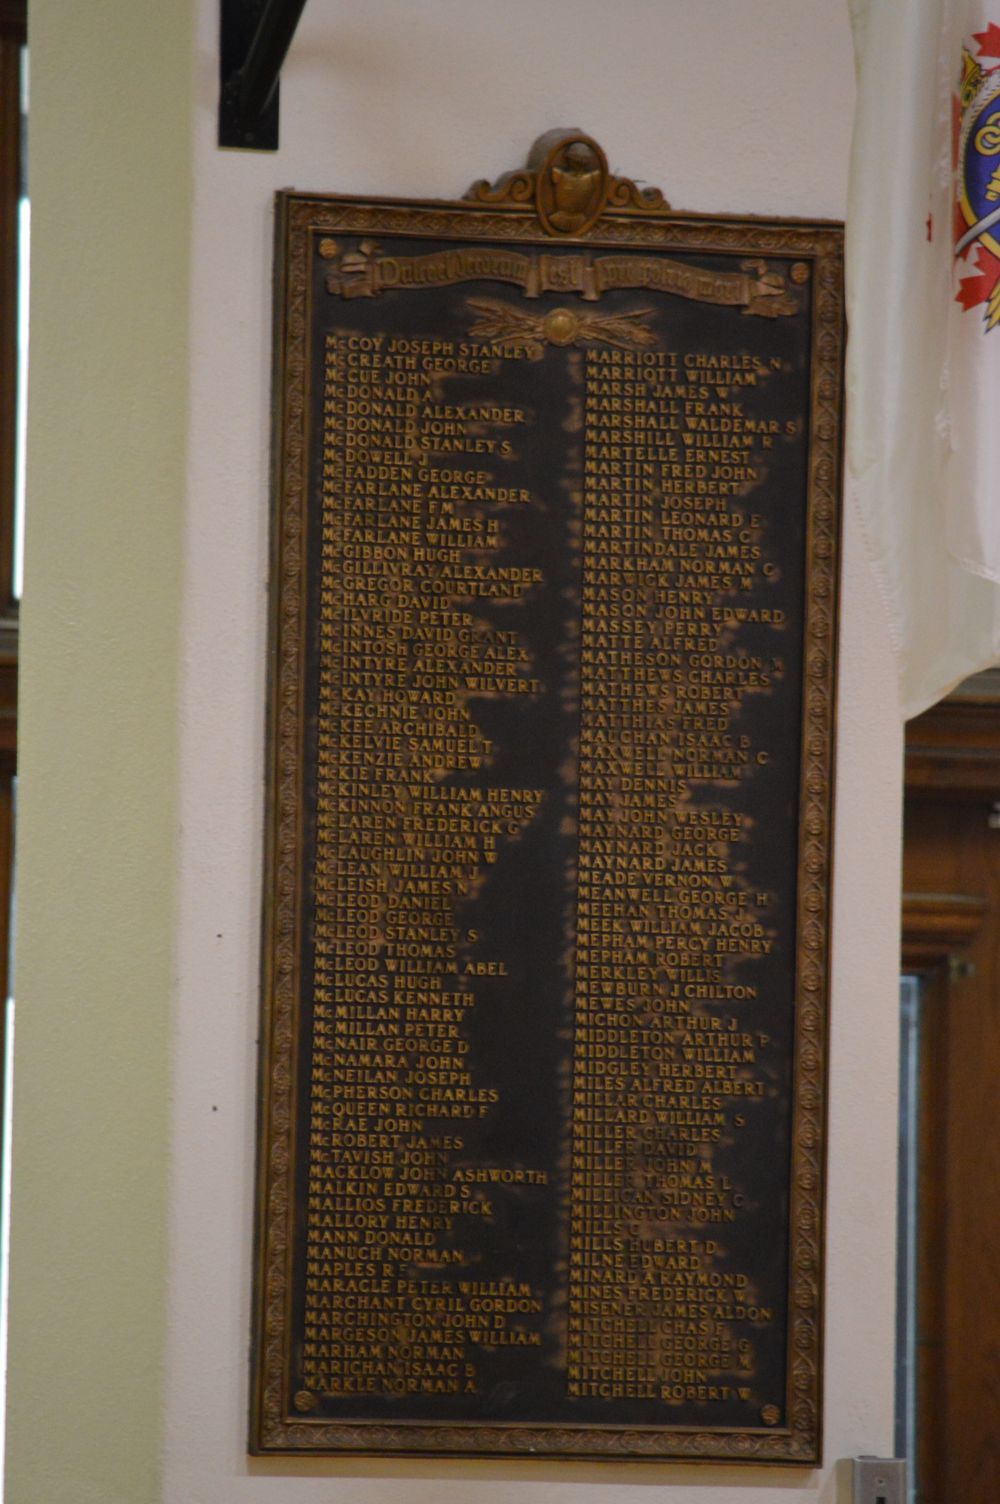 Dulce et decorum est pro patria mori
McCOY JOSEPH STANLEY
McCREATH GEORGE
McCUE JOHN
McDONALD A
McDONALD ALEXANDER
McDONALD JOHN
McDONALD STANLEY S
McDOWELL J
McFADDEN GEORGE
McFARLANE ALEXANDER
McFARLANE F M
McFARLANE JAMES H
McFARLANE WILLIAM
McGIBBON HUGH
McGILLIVRAY ALEXANDER
McGREGOR COURTLAND
McHARG DAVID
McILVRIDE PETER
McINNES DAVID GRANT
McINTOSH GEORGE ALEX
McINTYRE ALEXANDER
McINTYRE JOHN WILVERT
McKAY HOWARD
McKECHNIE JOHN
McKEE ARCHIBALD
McKELVIE SAMUEL T
McKENZIE ANDREW
McKIE FRANK
McKINLEY WILLIAM HENRY
McKINNON FRANK ANGUS
McLAREN FREDERICK G
McLAREN WILLIAM H
McLAUGHLIN JOHN W
McLEAN WILLIAM J
McLEISH JAMES N
McLEOD DANIEL
McLEOD GEORGE
McLEOD STANLEY S
McLEOD THOMAS
McLEOD WILLIAM ABEL
McLUCAS HUGH
McLUCAS KENNETH
McMILLAN HARRY
McMILLAN PETER
McNAIR GEORGE D
McNAMARA JOHN
McNEILAN JOSEPH
McPHERSON CHARLES
McQUEEN RICHARD F
McRAE JOHN
McROBERT JAMES
McTAVISH JOHN
MACKLOW JOHN ASHWORTH
MALKIN EDWARD S
MALLIOS FREDERICK
MALLORY HENRY
MANN DONALD
MANUCH NORMAN
MAPLES R E
MARACLE PETER WILLIAM
MARCHANT CYRIL GORDON
MARCHINGTON JOHN D
MARGESON JAMES WILLIAM
MARHAM NORMAN
MARICHAN ISAAC B
MARKLE NORMAN A
MARRIOTT CHARLES N
MARRIOTT WILLIAM
MARSH JAMES W
MARSHALL FRANK
MARSHALL WALDEMAR S
MARSHILL WILLIAM R
MARTELLE ERNEST
MARTIN FRED JOHN
MARTIN HERBERT
MARTIN JOSEPH
MARTIN LEONARD E
MARTIN THOMAS C
MARTINDALE JAMES
MARKHAM NORMAN C
MARWICK JAMES M
MASON HENRY
MASON JOHN EDWARD
MASSEY PERRY
MATTE ALFRED
MATHESON GORDON M
MATTHEWS CHARLES
MATHEWS ROBERT
MATTHES JAMES
MATTHIAS FRED
MAUCHAN ISAAC B
MAXWELL NORMAN C
MAXWELL WILLIAM
MAY DENNIS
MAY JAMES
MAY JOHN WESLEY
MAYNARD GEORGE
MAYNARD JACK
MAYNARD JAMES
MEADE VERNON W
MEANWELL GEORGE H
MEEHAN THOMAS J
MEEK WILLIAM JACOB
MEPHAM PERCY HENRY
MEPHAM ROBERT
MERKLEY WILLIS
MEWBURN J CHILTON
MEWES JOHN
MICHON ARTHUR J
MIDDLETON ARTHUR P
MIDDLETON WILLIAM
MIDGLEY HERBERT
MILES ALFRED ALBERT
MILLAR CHARLES
MILLARD WILLIAM S
MILLER CHARLES
MILLER DAVID
MILLER JOHN M
MILLER THOMAS L
MILLICAN SIDNEY C
MILLINGTON JOHN
MILLS C
MILLS HUBERT D
MILNE EDWARD
MINARD A RAYMOND
MINES FREDERICK W
MISENER JAMES ALDON
MITCHELL CHAS F
MITCHELL GEORGE G
MITCHELL GEORGE M
MITCHELL JOHN
MITCHELL ROBERT W